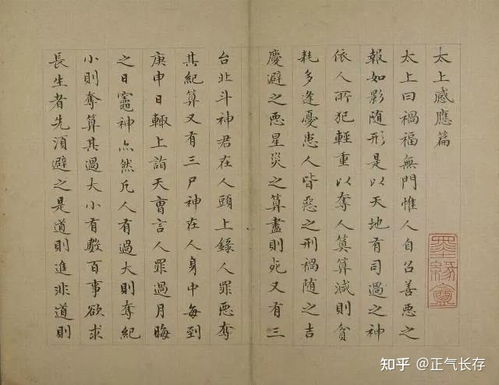 太上感應篇
太上曰禍福無門惟人自召善惡之
報如影随形是以天地有司過之神
依人所犯輕重以奪人算算減則貧
耗多逢憂患人皆惡之刑禍随之吉
慶避之惡星災之算盡則死又有三
台北斗神君在人頭上錄人罪惡奪
其紀算又有三尸神在人身中每到
庚申日輙上詣天曹言人罪過月晦
之日竈神亦然凡人有過大則奪紀
小則奪算其過大小有數百事欲求
長生者先須避之是道則進非道則
知乎 @正气长存